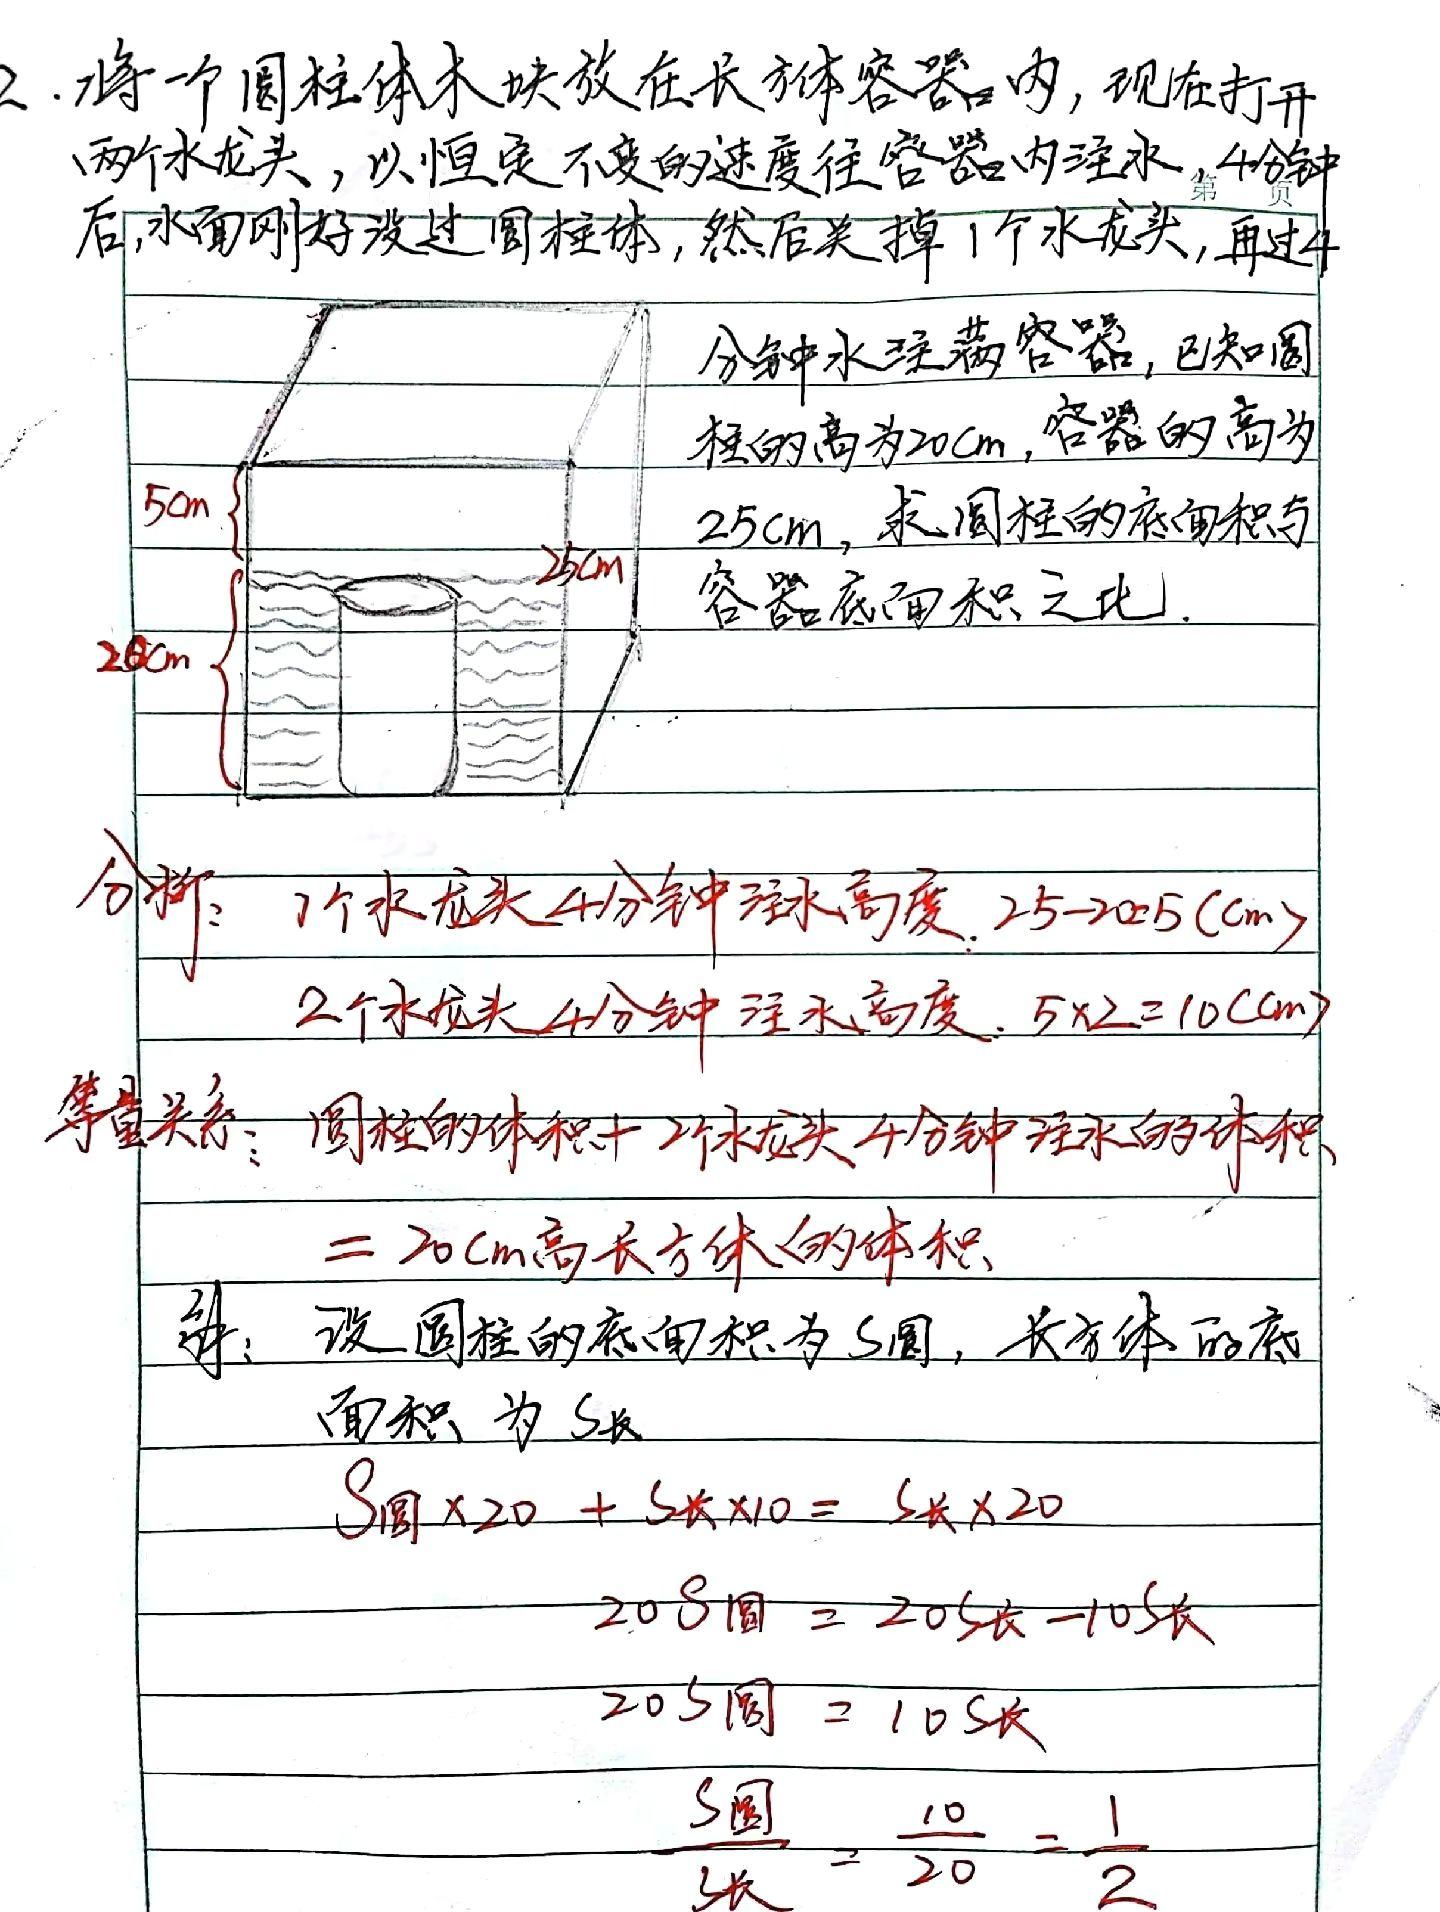 2.将一个圆柱体木块放在长方体容器内,现在打开
两个水龙头,以恒定不变的速度往容器内注水,4分钟
第 页
后,水面刚好没过圆柱体,然后关掉1个水龙头,再过4
分钟水注满容器,已知圆
柱的高为20cm,容器的高为
25cm,求圆柱的底面积与
容器底面积之比.
5cm
25cm
20cm
分析: 1个水龙头4分钟注水高度.25-20=5(cm)
2个水龙头4分钟注水高度.5×2=10(cm)
等量关系: 圆柱的体积+2个水龙头4分钟注水的体积
=20cm高长方体的体积
解: 设圆柱的底面积为S圆,长方体的底
面积为S长
S圆×20+S长×10=S长×20
20S圆=20S长-10S长
20S圆=10S长
S圆/S长=10/20=1/2